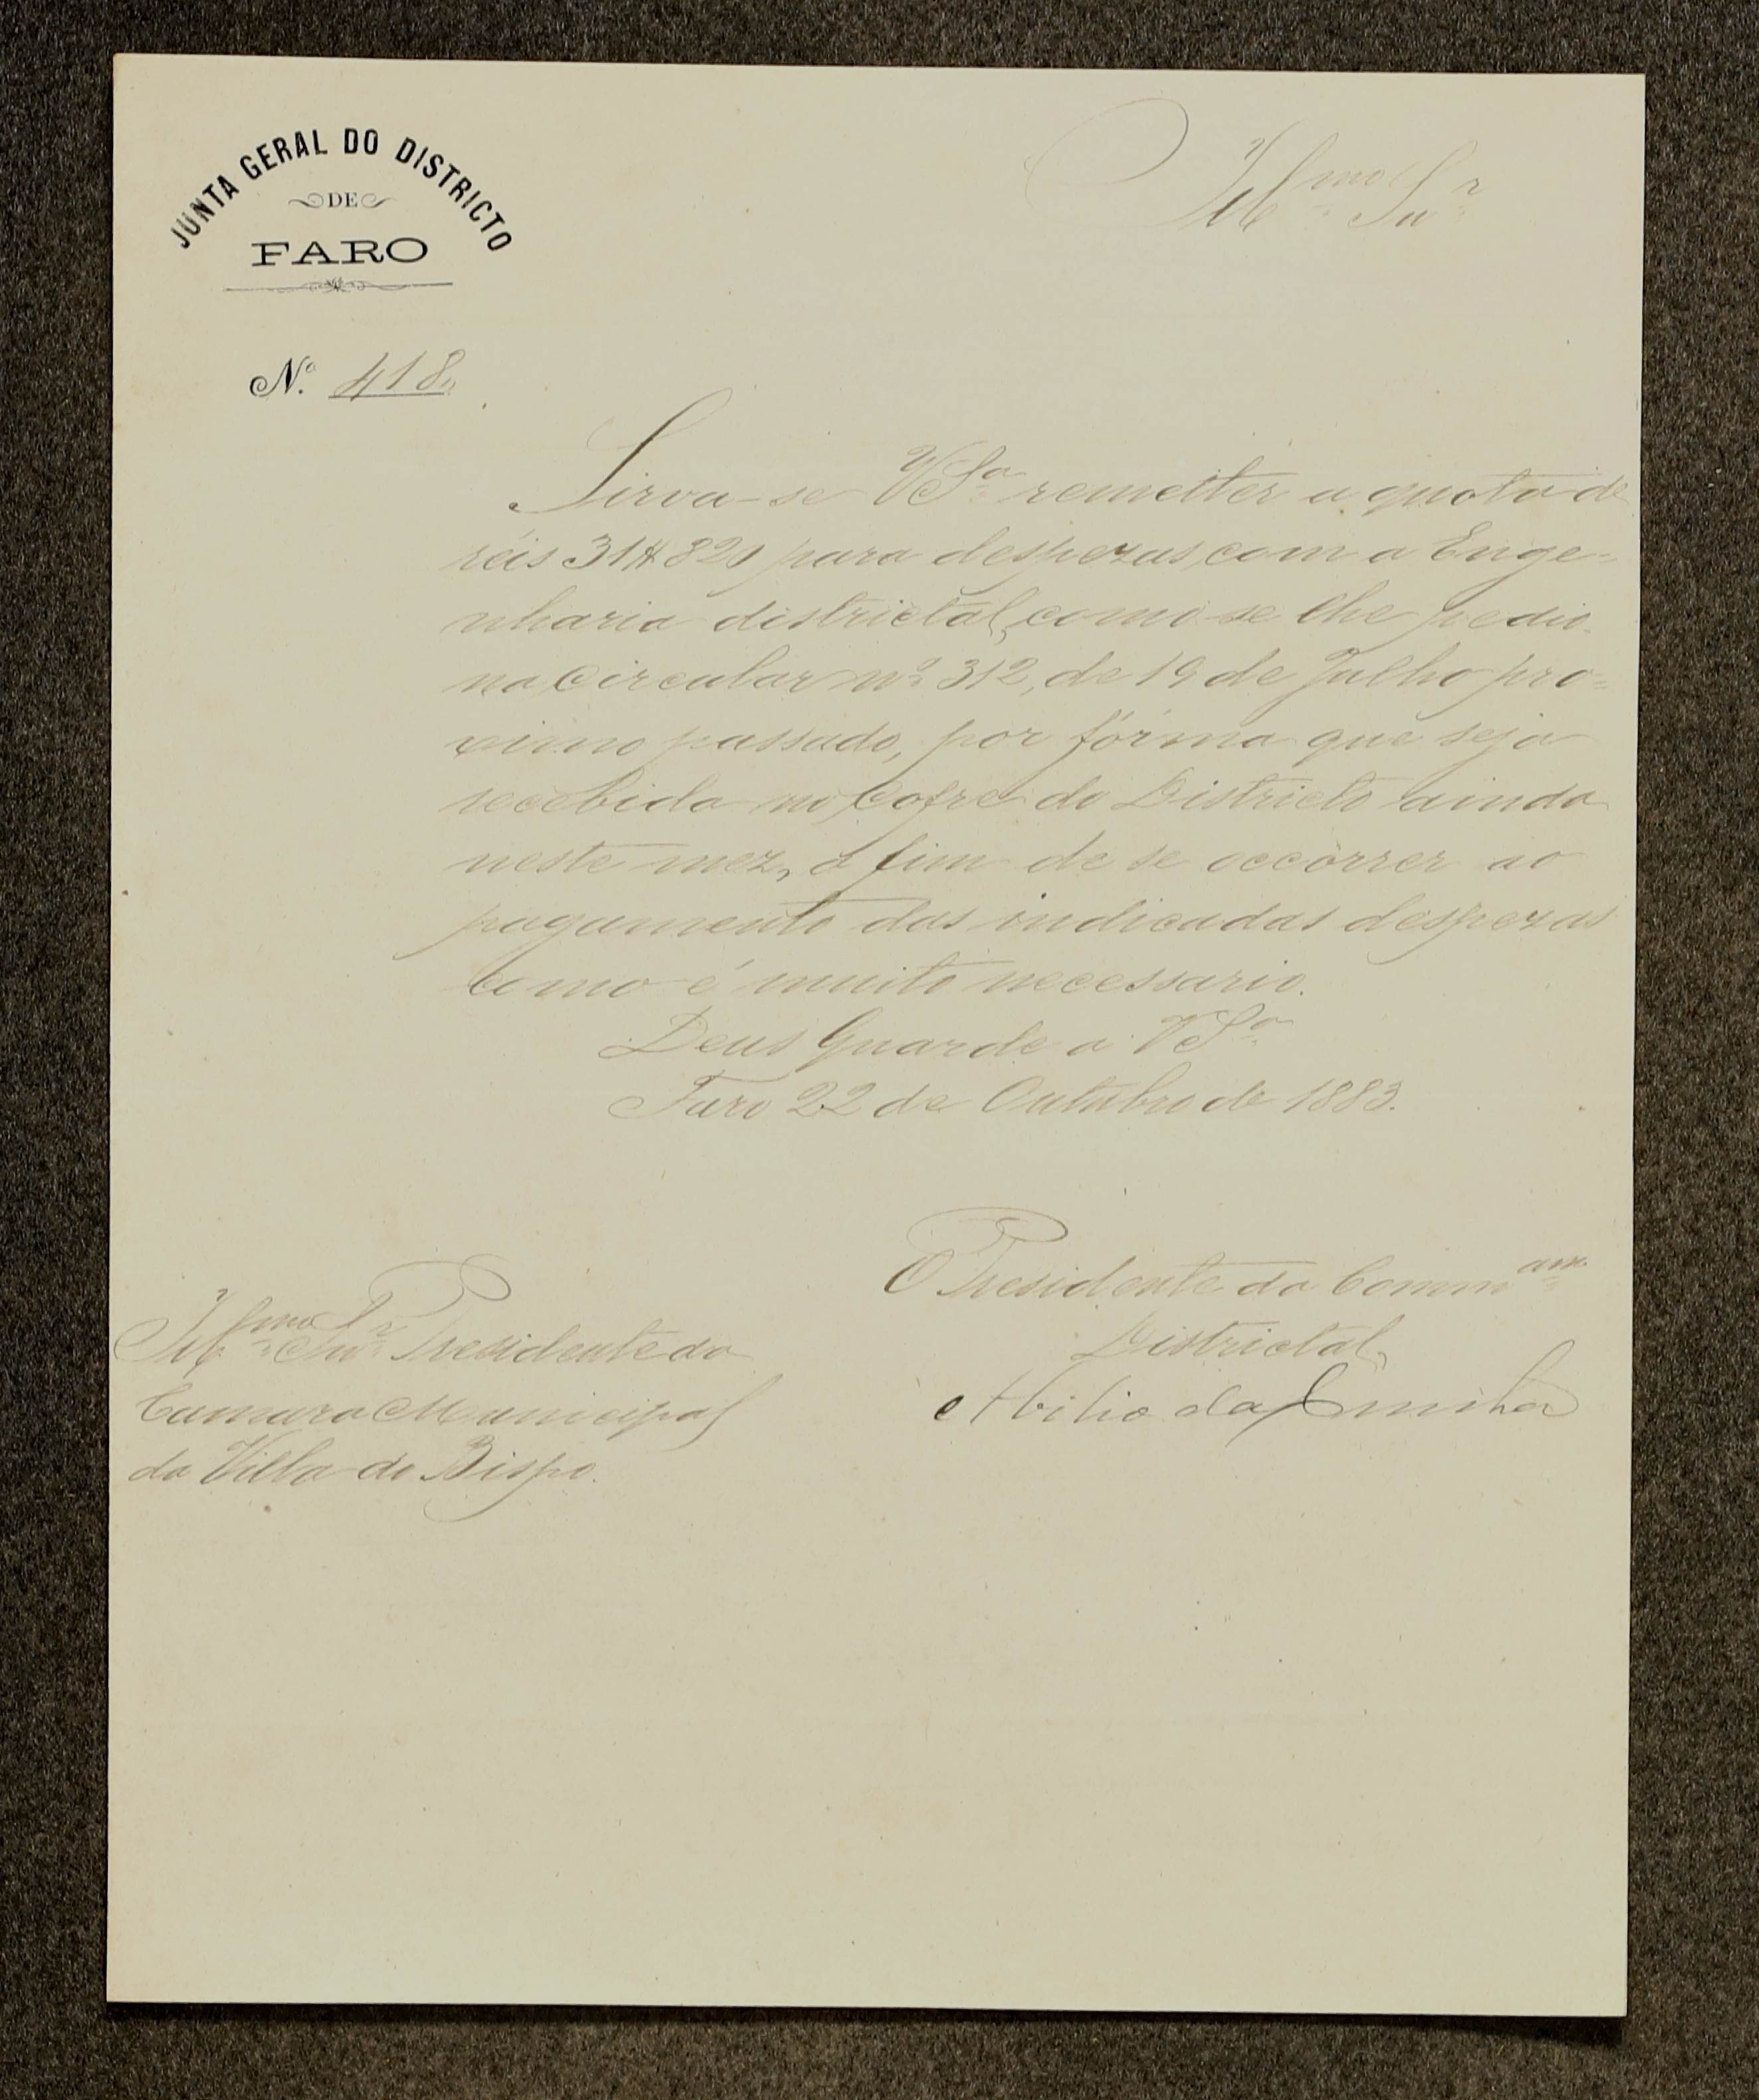 JUNTA GERAL DO DISTRICTO
DE
FARO
Nº 418.
Illmo Snr
Sirva-se VSa remetter a quota de
réis 31$820 para despezas, com a Enge-
nharia districtal, como se lhe pedio
na Circular nº 312, de 19 de Julho pro-
ximo passado, por fórma que seja
recebida no Cofre do Districto ainda
neste mez, a fim de se occòrrer ao
pagamento das indicadas despezas
como é muito necessario.
Deus Guarde a VSa
Faro 22 de Outubro de 1883.
O Presidente da Commam
Districtal,
Abilio da Cunha
Illmo Snr Presidente da
Camara Municipal
da Villa do Bispo.